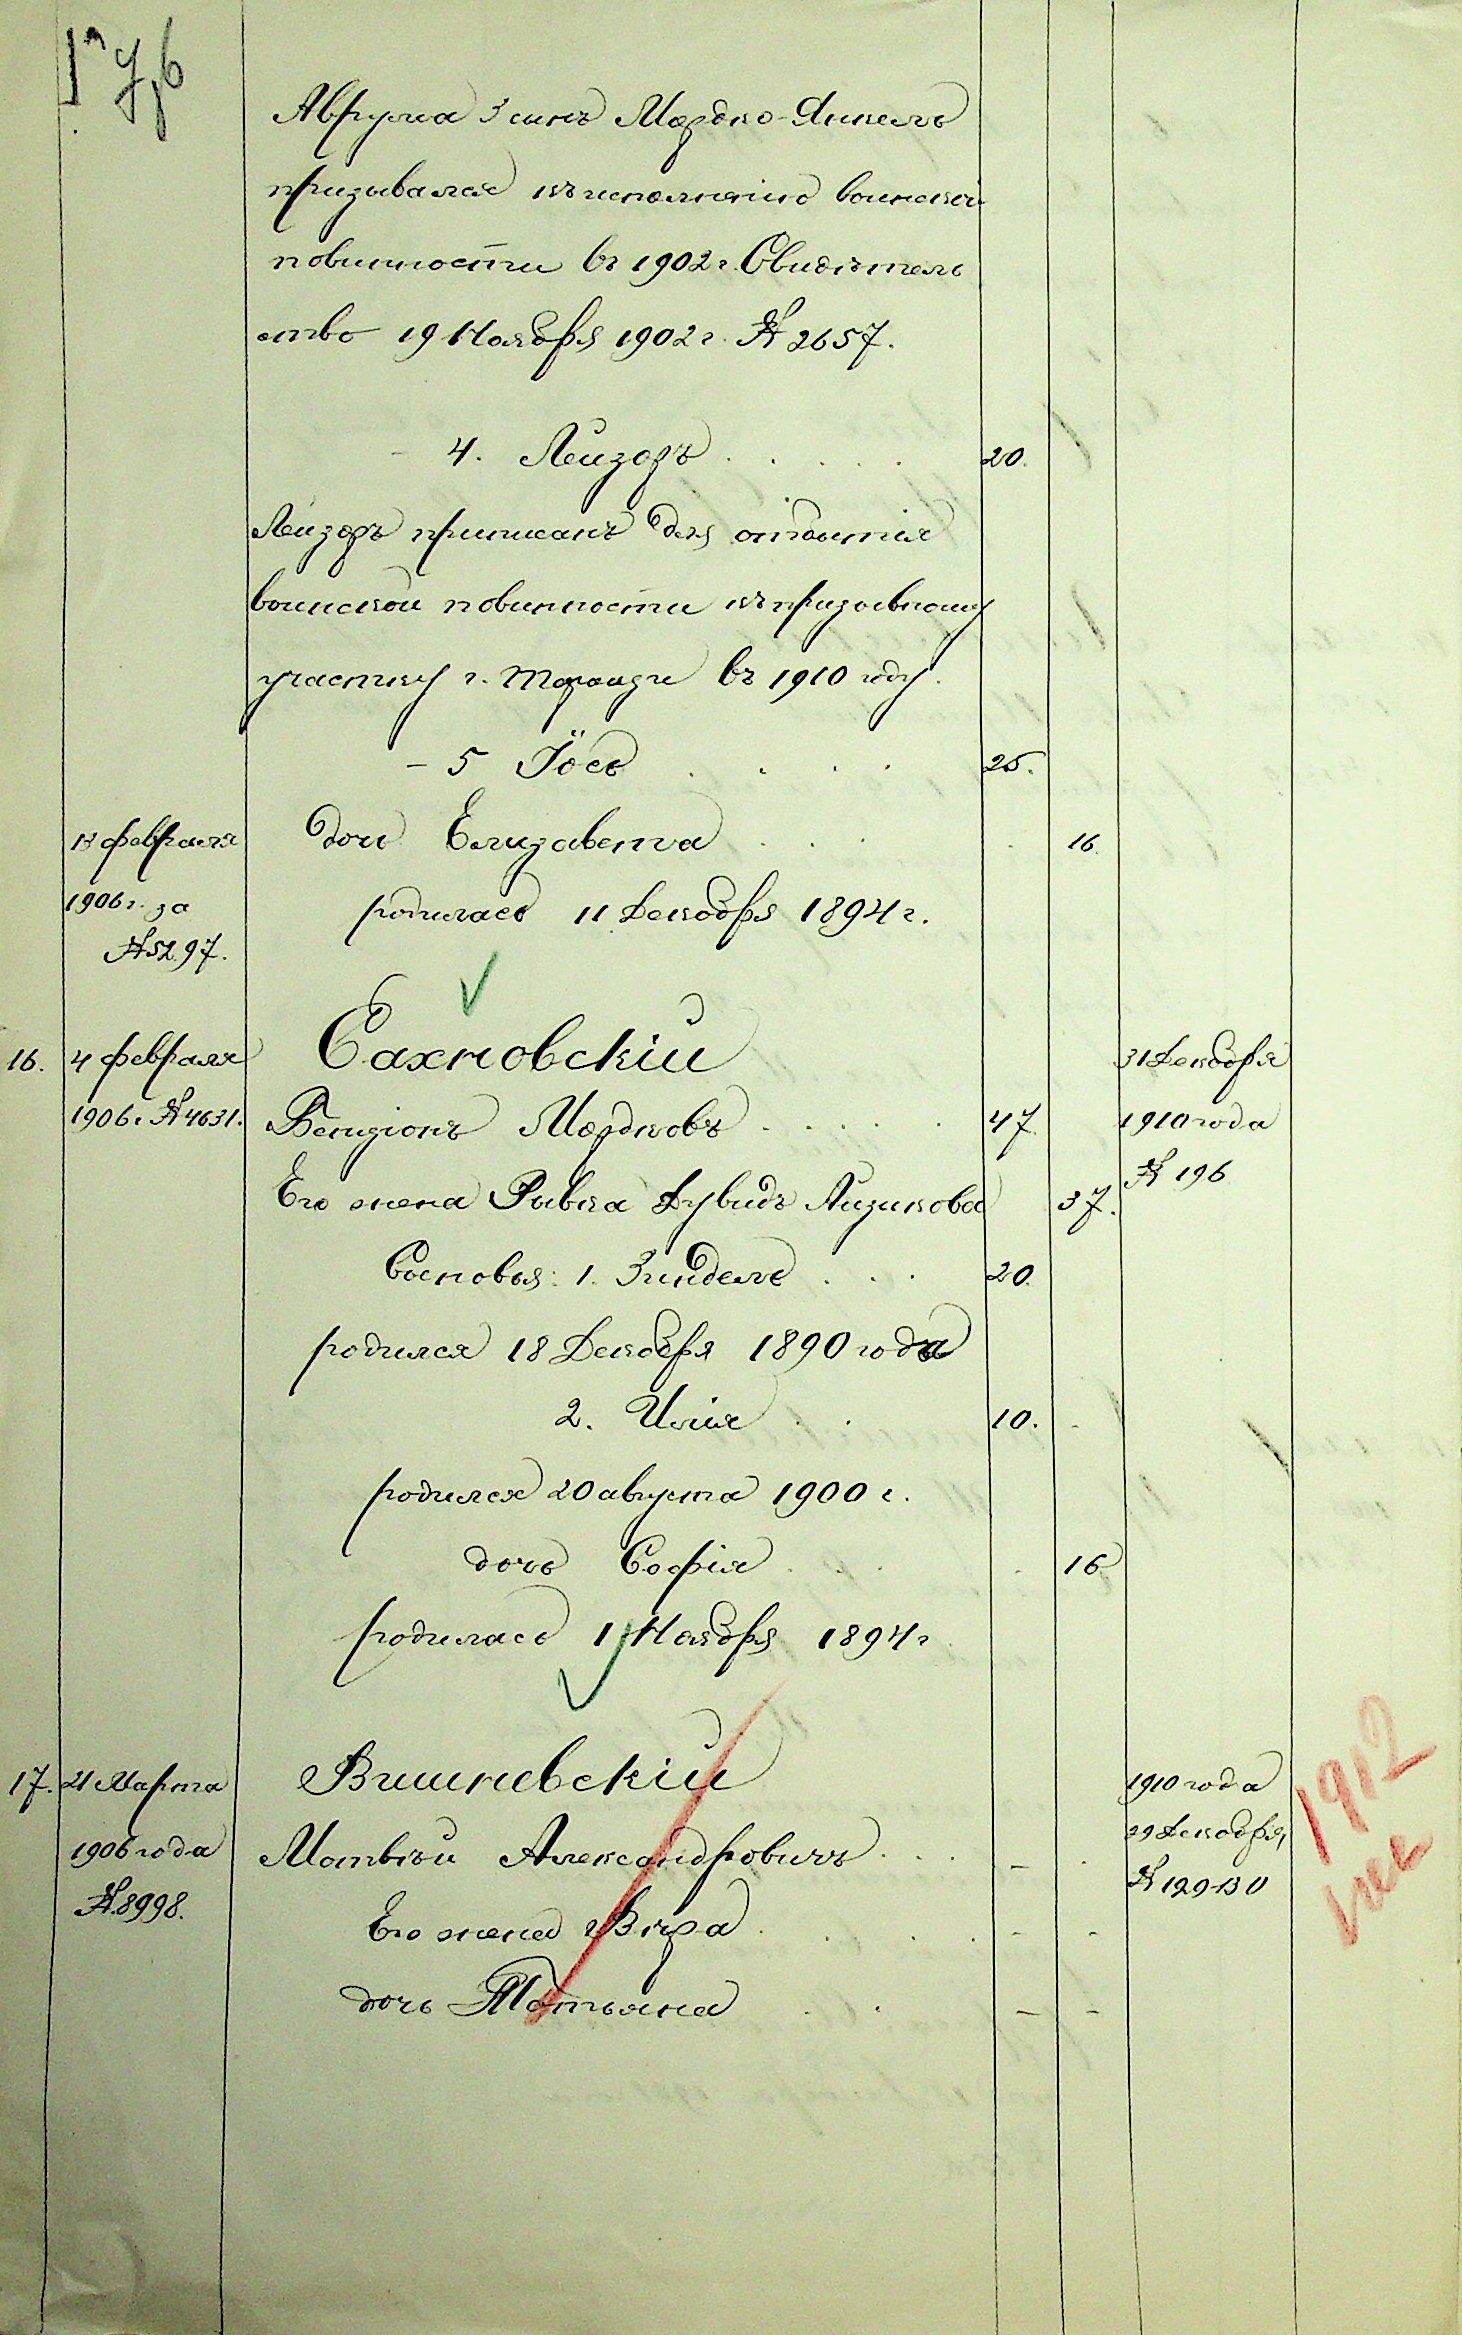 Аврума 3 сынъ Мордко-Янкель
призывался къ исполненію воинской
повинности въ 1902 г. Свидѣтель
ство 19 Ноября 1902 г. № 2657.
- 4. Лейзоръ . . . . . 20.
Лейзоръ приписанъ для отбытія
воинской повинности къ призывному
участку г. въ 1910 году.
- 5 Іось . . . . 25.
13 февраля
1906 г. за
№ 5297.
дочь Елизавета . . . . 16.
родилась 11 Декабря 1894 г.
16. 4 февраля
1906 г. № 4631.
Сахновскій
31 Декабря
1910 года
№ 196
Бенціонъ Мордковъ . . . . . 47.
Его жена Ривка Дувидъ Айзикова 37.
Сыновья: 1. Зиндель . . . 20.
родился 18 Декабря 1890 года
2. Илія . . 10. -
родился 20 августа 1900 г.
дочь Софія . . . 16
родилась 1 Ноября 1894 г
17. 21 Марта
1906 года
№ 8998.
Вишневскій
1910 года
29 Декабря
№ 129130
1912
Матвѣй Александровичъ . . . . -
Его жена Вѣра . . . . - -
дочь Татьяна . . - -